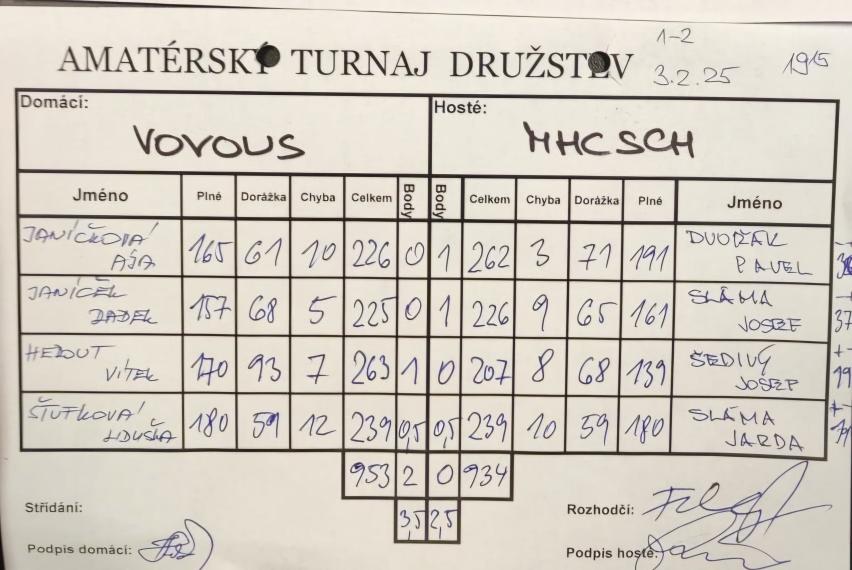 1-2
AMATÉRSKÝ TURNAJ DRUŽSTEV 3.2.25 1915
Domácí: Hosté:
VOVOUS MHCSCH
Jméno Plné Dorážka Chyba Celkem Body Body Celkem Chyba Dorážka Plné Jméno
JANÍČKOVÁ AJA 165 61 10 226 0 1 262 3 71 191 DVOŘÁK PAVEL
JANÍČEK DADEK 157 68 5 225 0 1 226 9 65 161 SLÁMA JOSEF 37
VÍTEK 170 93 7 263 1 0 207 8 68 139 ŠEDIVÝ JOSEF +19
ŠŤUFKOVÁ LIDUŠKA 180 59 12 239 0,5 0,5 239 10 59 180 SLÁMA JARDA
953 2 0 934
Střídání: 3,5 2,5 Rozhodčí:
Podpis domácí: Podpis hosté: